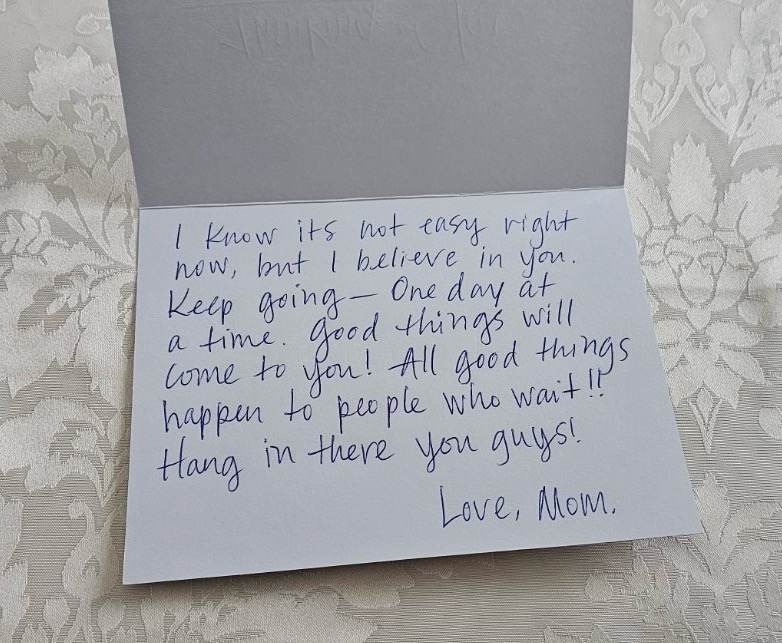 I know its not easy right
now, but I believe in you.
Keep going— One day at
a time. good things will
come to you! All good things
happen to people who wait!!
Hang in there you guys!
Love, Mom.